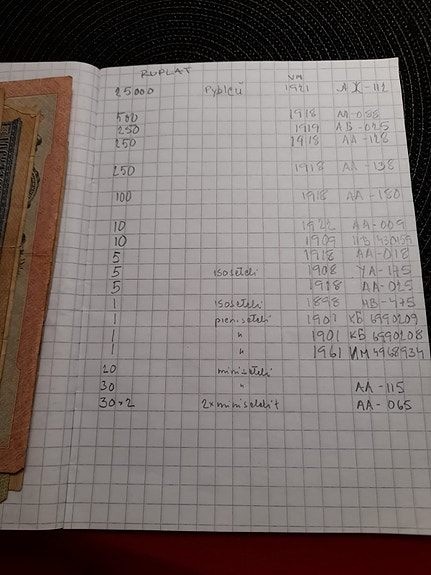 RUPLAT VM
25000 Рублей 1921 АЖ-112
500 1918
250 1919 АБ-025
250 1918 АА-128
250 1918 АА-138
100 1918 АА-180
10 1922 АА-009
10 1909
5 1918 АА-018
5 isoseteli 1908 УА-175
5 1918 АА-025
1 isoseteli 1898 НВ-475
1 pieniseteli 1901 КБ 6990209
1 " 1901 КБ 6990208
1 " 1961 ИМ 4968934
20 miniseteli
30 " АА-115
30×2 2x minisetelit АА-065